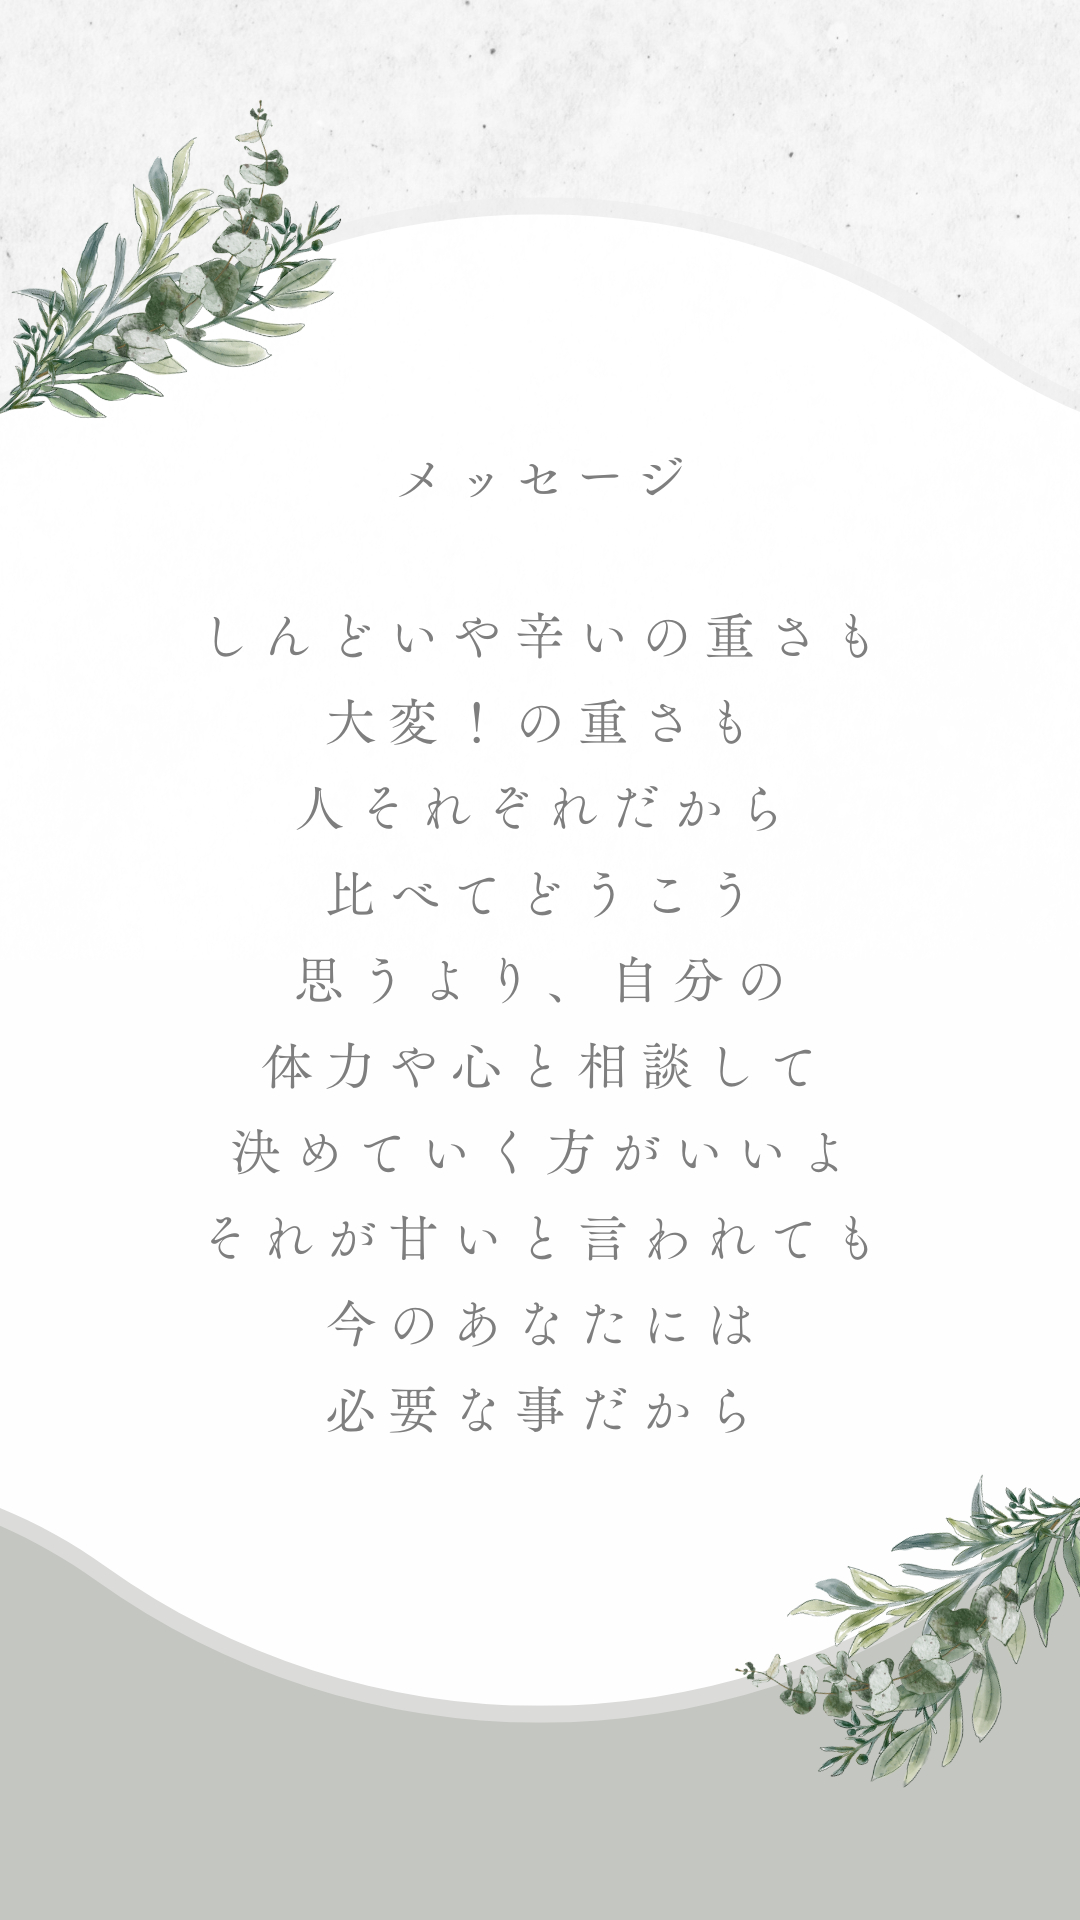 メッセージ
しんどいや辛いの重さも
大変！の重さも
人それぞれだから
比べてどうこう
思うより、自分の
体力や心と相談して
決めていく方がいいよ
それが甘いと言われても
今のあなたには
必要な事だから